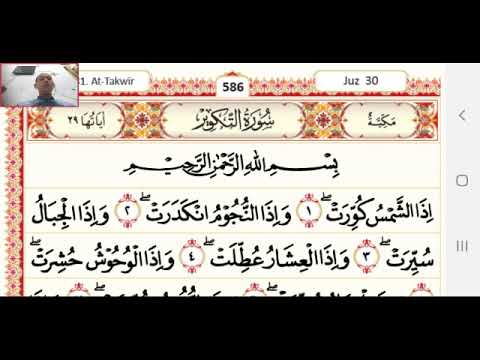 1. At-Takwir 586 Juz 30
مَكِّيَّةٌ سُوْرَةُ التَّكْوِيْرِ اٰيَاتُهَا ٢٩
بِسْمِ اللّٰهِ الرَّحْمٰنِ الرَّحِيْمِ
اِذَا الشَّمْسُ كُوِّرَتْۖ ١ وَاِذَا النُّجُوْمُ انْكَدَرَتْۖ ٢ وَاِذَا الْجِبَالُ
سُيِّرَتْۖ ٣ وَاِذَا الْعِشَارُ عُطِّلَتْۖ ٤ وَاِذَا الْوُحُوْشُ حُشِرَتْۖ